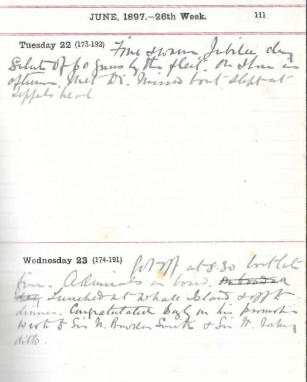 JUNE, 1897.—26th Week. 111
Tuesday 22 (173-192) Fine warm Jubilee day
Salute of 60 guns by the fleet. On shore in
afternoon. Met Di. Missed boat slept at
head
Wednesday 23 (174-191) Got off at 8.30 boat late
from. Admirals on board.
Lunched at Whale Island & off to
dinner. Congratulated on his promotion
Wrote to Sir N. Bowden Smith & Sir H.
ditto.